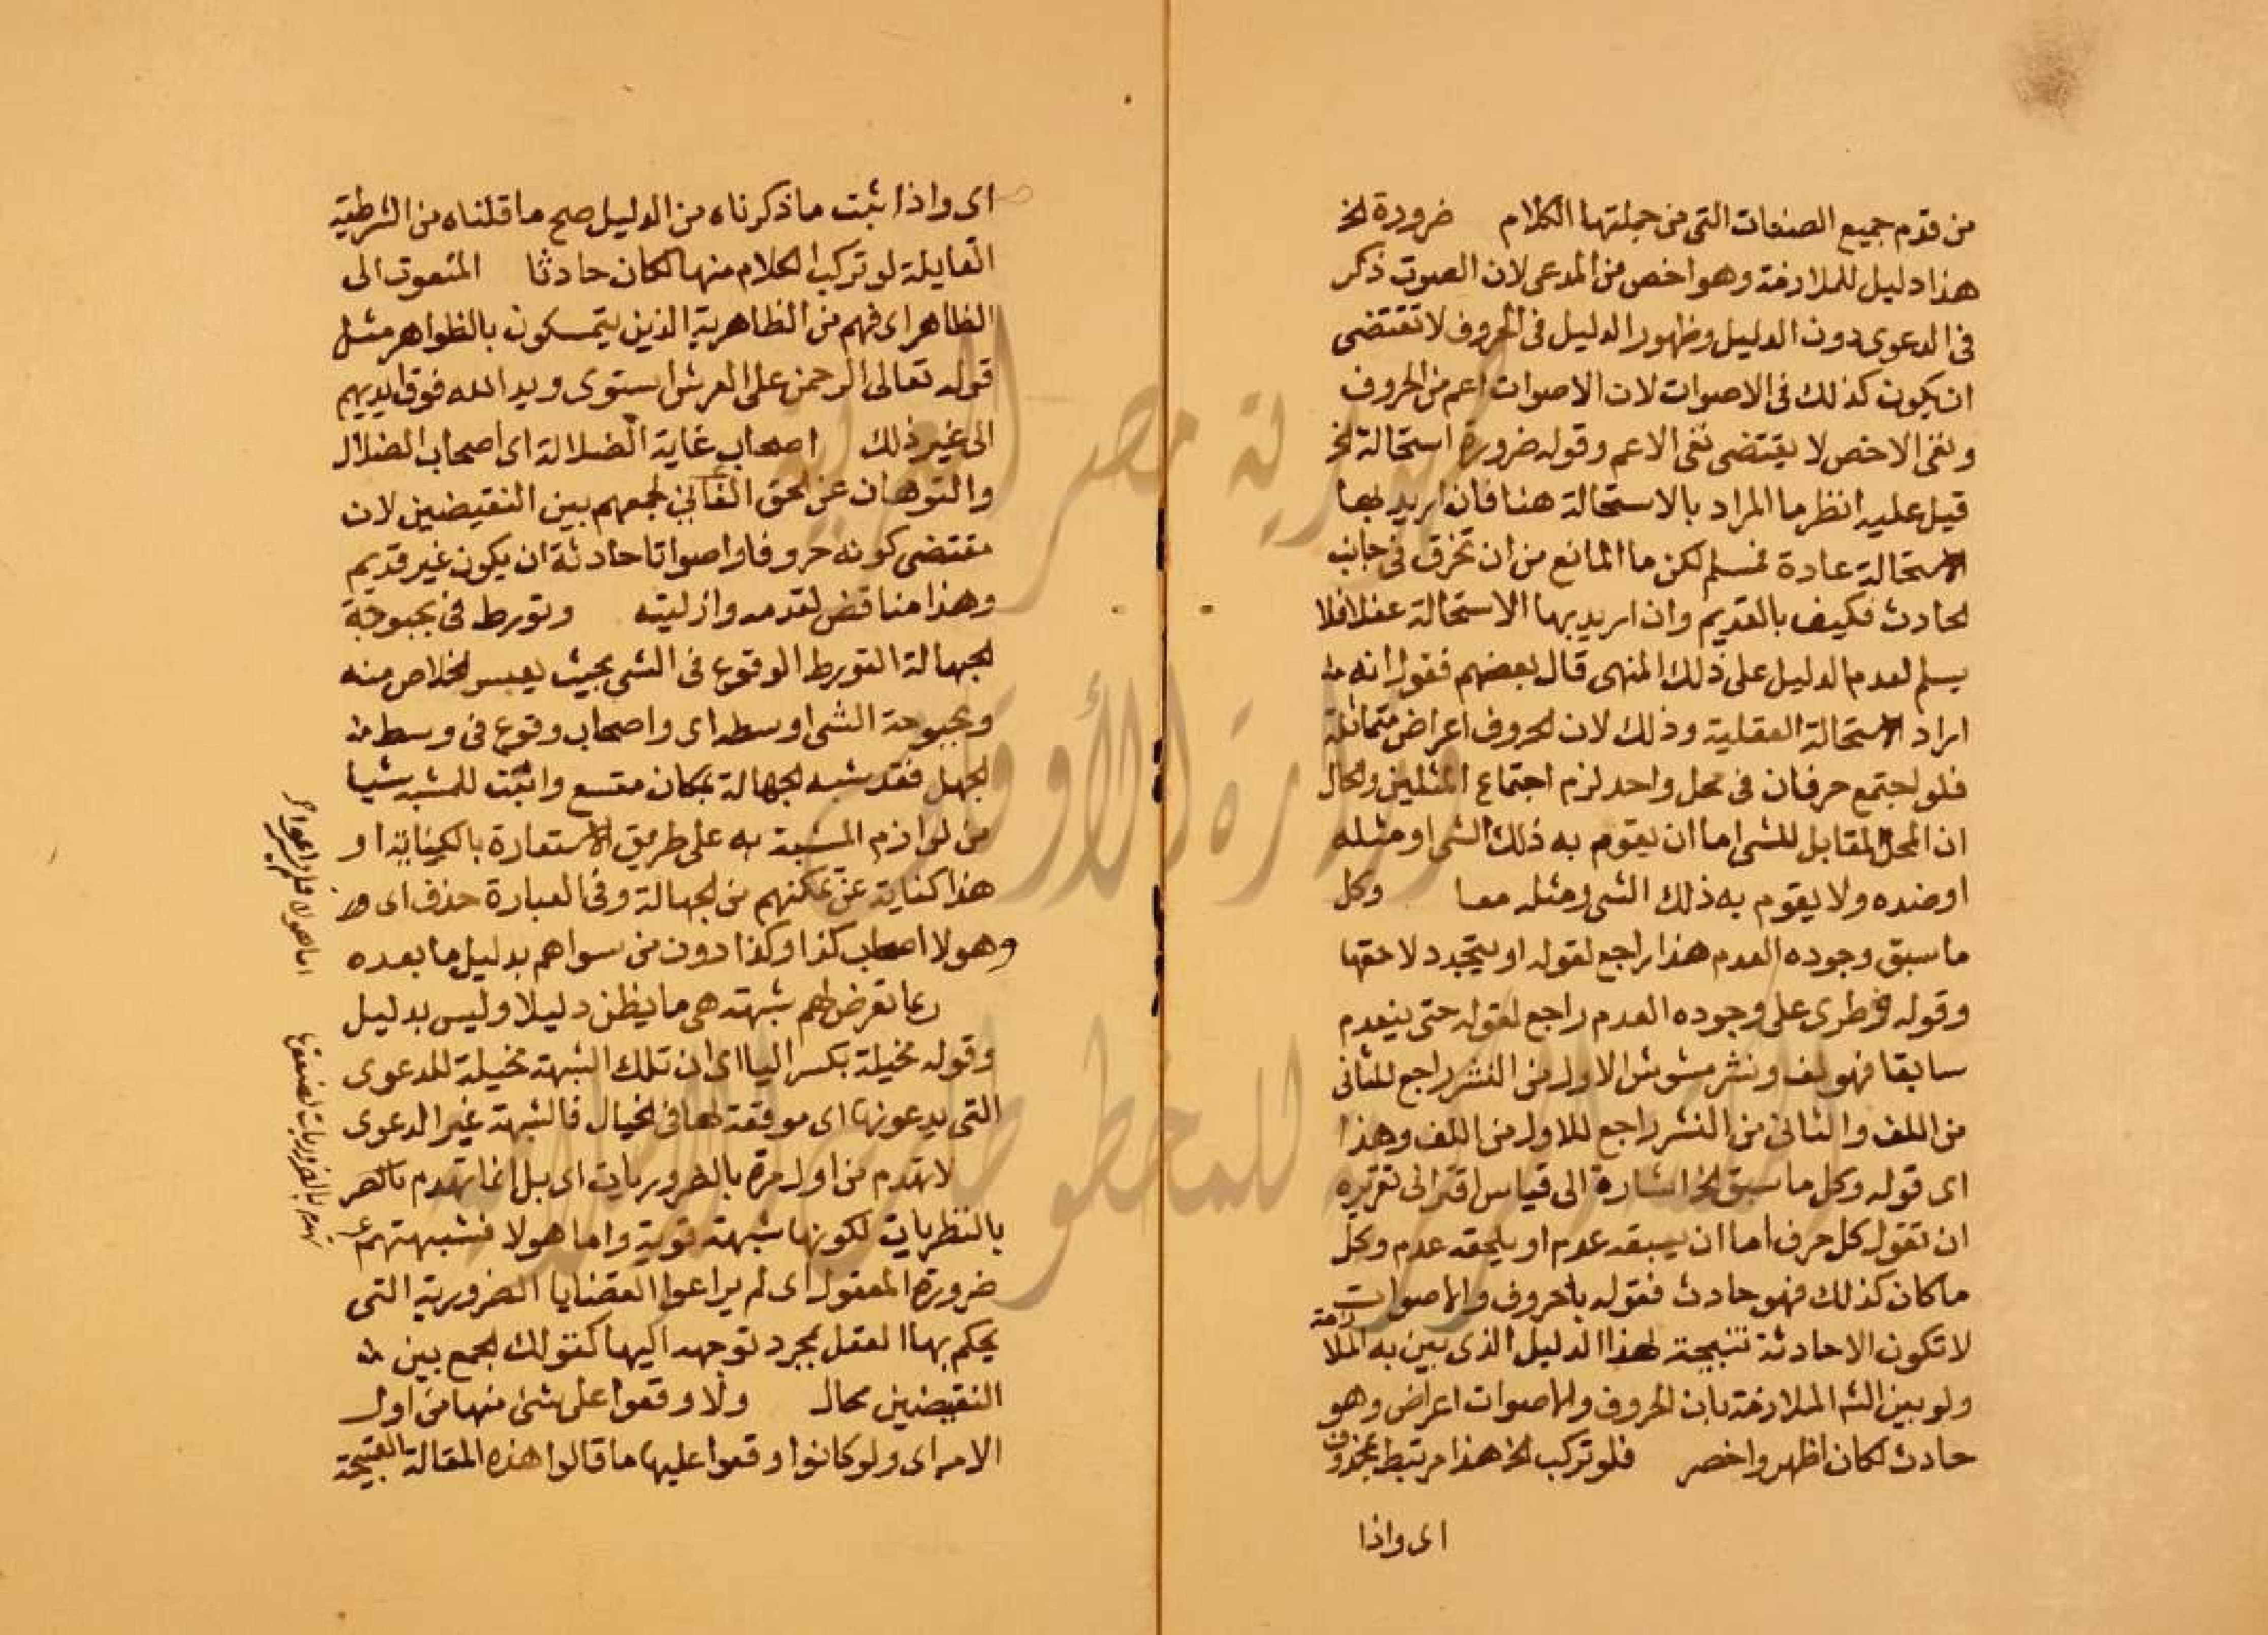 من قدم جميع الصفات التي من جملتها الكلام ضرورة الخ
هذا دليل للملازمة وهو اخص من المدعى لان الصوت ذكر
في الدعوى دون الدليل وظهور الدليل في الحروف لا تقتضى
ان يكون كذلك في الاصوات لان الاصوات اعم من الحروف
ونفى الاخص لا يقتضى نفى الاعم وقوله ضرورة استحالة الخ
قيل عليه انظر ما المراد بالاستحالة هنا فان اريد بها
الاستحالة عادة فمسلم لكن ما المانع من ان تخرق في جانب
الحادث فكيف بالقديم وان اريد بها الاستحالة عقلا فلا
يسلم لعدم الدليل على ذلك انتهى قال بعضهم فقول انه
اراد الاستحالة العقلية وذلك لان الحروف اعراض متماثلة
فلو اجتمع حرفان في محل واحد لزم اجتماع المثلين والحال
ان المحل المقابل للشى اما ان يقوم به ذلك الشى او مثله
او ضده ولا يقوم به ذلك الشى ومثله معا وكل
ما سبق وجوده العدم هذا راجع لقوله او يتجدد لاحقها
وقوله او طرى على وجوده العدم راجع لقوله حتى ينعدم
سابقا فهو لف ونشر مشوش الاول من النشر راجع للثانى
من اللف والثانى من النشر راجع للاول من اللف وهذا
اى قوله وكل ما سبق الخ اشارة الى قياس اقترانى تقريره
ان تقول كل حرف اما ان يسبقه عدم او يلحقه عدم وكل
ما كان كذلك فهو حادث فقوله بالحروف والاصوات
لا تكون الا حادثة نتيجة لهذا الدليل الذى بين به الملازمة
ولو بين الش الملازمة بان الحروف والاصوات اعراض وهو
حادث لكان اظهر واخصر فلو تركب الخ هذا مرتبط بمحذوف
اى واذا
اى واذا ثبت ما ذكرناه من الدليل صح ما قلناه من الشرطية
القايلة لو تركب الكلام منها لكان حادثا المنعوت الى
الظاهر اى فهم من الظاهرية الذين يتمسكون بالظواهر مثل
قوله تعالى الرحمن على العرش استوى ويد الله فوق ايديهم
الى غير ذلك اصحاب غاية الضلالة اى اصحاب الضلال
والتوهان عن الحق لجمعهم بين النقيضين لان
مقتضى كونه حروفا واصواتا حادثة ان يكون غير قديم
وهذا مناقض لقدمه وازليته وتورط في بحبوحة
الجهالة التورط الوقوع في الشى بحيث يعسر الخلاص منه
وبحبوحة الشى اوسطه اى واصحاب وقوع في وسط
الجهل فقد شبه الجهالة بمكان متسع واثبت للمشبه شيا
من لوازم المشبة به على طريق الاستعارة بالكناية او
هذا كناية عن تمكنهم من الجهالة وفي العبارة حذف اى
وهولا اصحاب كذا وكذا دون من سواهم بدليل ما بعده
ربما تعرض لهم شبهته هى ما يظن دليلا وليس بدليل
وقوله مخيلة بكسر اليا اى ان تلك الشبهة مخيلة للدعوى
التى يدعونها اى موقعة لها في الخيال فالشبهة غير الدعوى
لا تهدم من اول مرة بالضروريات اى بل انما تهدم
بالنظريات لكونها شبهة قوية واما هولا فشبهتهم
ضرورة العقول اى لم يراعوا القضايا الضرورية التى
يحكم بها العقل بمجرد توجهه اليها كقولك الجمع بين
النقيضين محال ولا وقعوا على شى منها من اول
الامر اى ولو كانوا وقعوا عليها ما قالوا هذه المقالة القبيحة